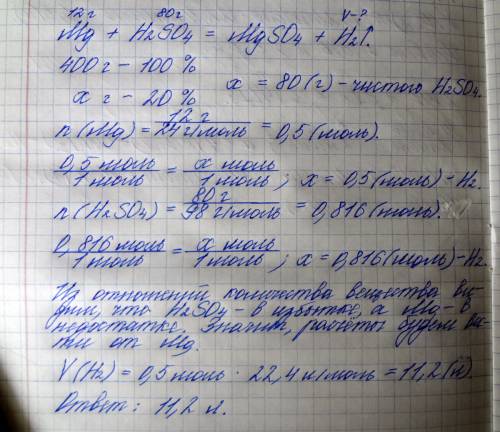 12 г 80 г V-?
Mg + H2SO4 = MgSO4 + H2↑.
400 г - 100 %
x г - 20 % x = 80 (г) - чистого H2SO4.
n (Mg) = 12 г / 24 г/моль = 0,5 (моль).
0,5 моль / 1 моль = x моль / 1 моль ; x = 0,5 (моль) - H2.
n (H2SO4) = 80 г / 98 г/моль = 0,816 (моль).
0,816 моль / 1 моль = x моль / 1 моль ; x = 0,816 (моль) - H2.
Из отношений количества вещества ви-
дим, что H2SO4 - в избытке, а Mg - в
недостатке. Значит, расчёты будем вес-
ти от Mg.
V (H2) = 0,5 моль · 22,4 л/моль = 11,2 (л).
Ответ: 11,2 л.